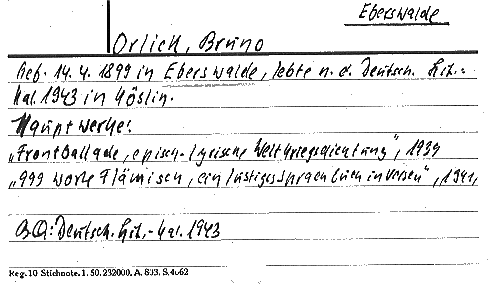 Eberswalde
Orlich, Bruno
Geb. 14. 4. 1899 in Eberswalde, lebte n. d. Deutsch. Lit.-
Kal. 1943 in Köslin.
Hauptwerke:
„Frontballade, episch-lyrische Weltkriegsdichtung", 1934
„999 Worte Flämisch, ein lustiges Sprachbuch in Versen", 1941,
BQ: Deutsch. Lit.-Kal. 1943
Reg. 10 Stichnote. 1. 50. 232000. A. 803. S. 4062